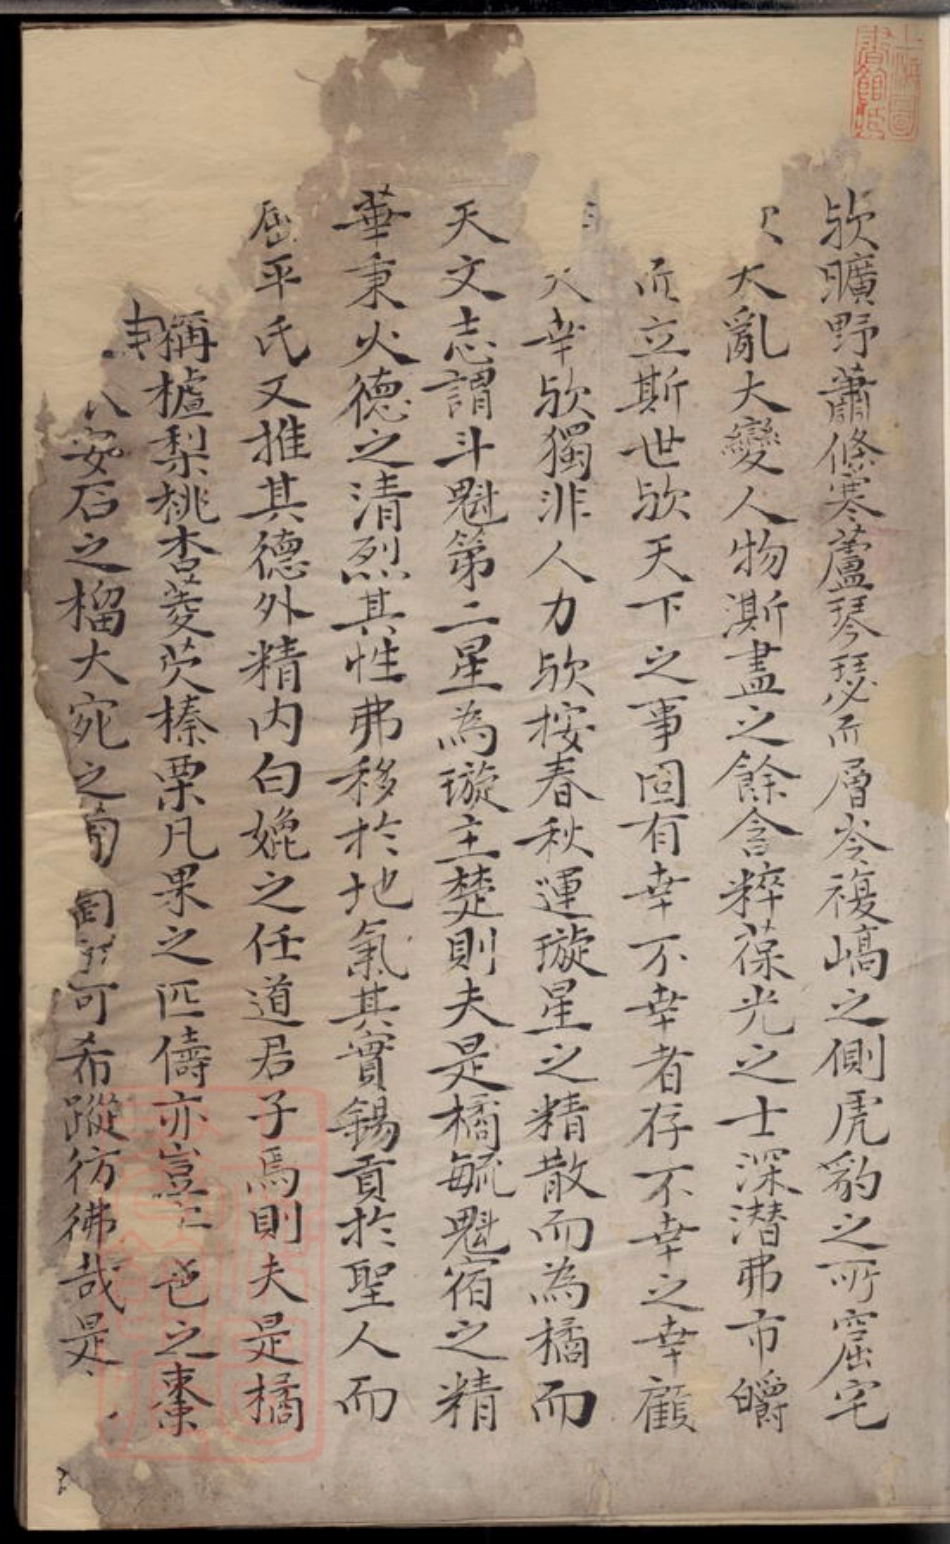 歟曠野蕭條寒蘆琴瑟而層岑複嶹之側虎豹之所窟宅
大亂大變人物澌盡之餘含粹葆光之士深潛弗市皭
所立斯世歟天下之事固有幸不幸者存不幸之幸顧
幸歟獨非人力歟按春秋運璇星之精散而為橘而
天文志謂斗魁第二星為璇主楚則夫是橘毓魁宿之精
華秉火德之清烈其性弗移於地氣其實錫貢於聖人而
屈平氏又推其德外精内白㛯之任道君子焉則夫是橘
稱樝梨桃杏菱芡榛栗凡果之匹儔亦豈邑之棗
安石之榴大宛之蔔可希蹤彷彿哉是
上海圖書館藏